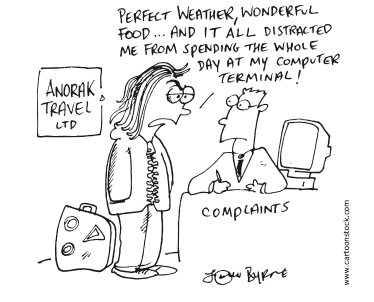 PERFECT WEATHER, WONDERFUL
FOOD... AND IT ALL DISTRACTED
ME FROM SPENDING THE WHOLE
DAY AT MY COMPUTER
TERMINAL!
ANORAK
TRAVEL
LTD
COMPLAINTS
BYRNE
www.cartoonstock.com